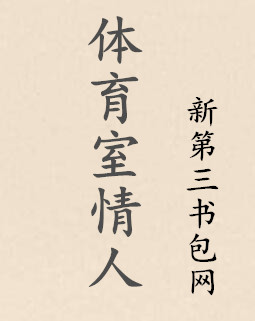 体育室情人
新第三书包网